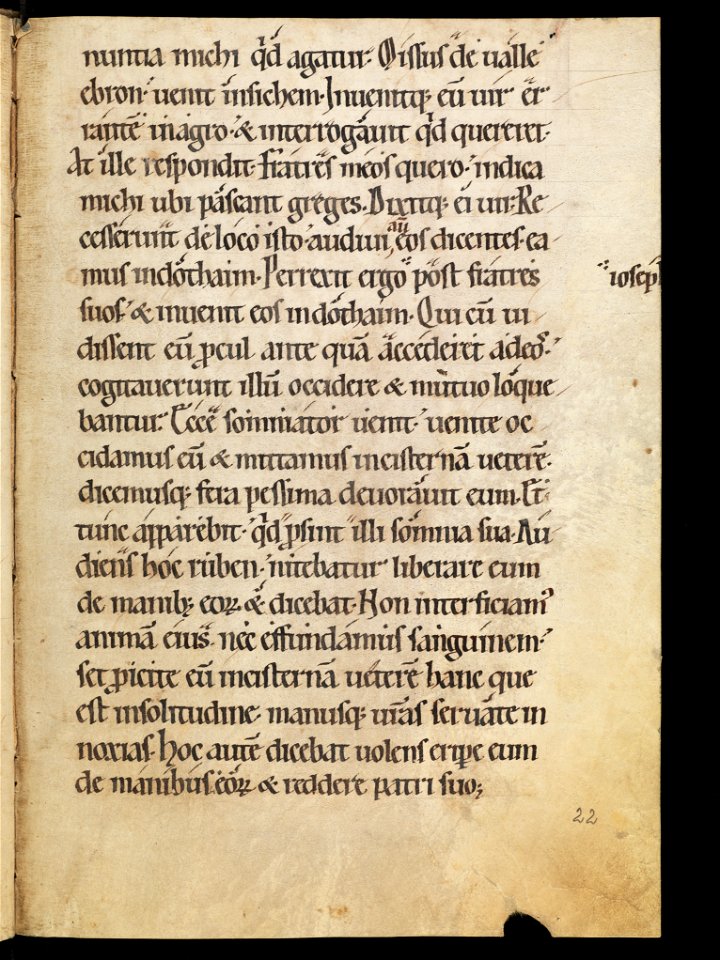 nuntia michi qd̄ agatur. Missus de ualle
ebron. uenit insichem. Inuenitq; eū uir er
rantē in agro. & interrogauit qd̄ quereret.
At ille respondit. Fratres meos quero. indica
michi ubi pascant greges. Dixitq; ei uir. Re
cesserunt de loco isto. audiui aūt eos dicentes. ea
mus indothaim. Perrexit ergo post fratres
suos. & inuenit eos indothaim. Qui cū ui
dissent eū ꝓcul ante quā accederet adeos.
cogitauerunt illū occidere & mutuo loque
bantur. Ecce somniator uenit. uenite oc
cidamus eū & mittamus incisternā ueterē.
dicemusq; fera pessima deuorauit eum. Et
tunc apparebit. qd̄ ꝓsint illi somnia sua. Au
diens hoc ruben. nitebatur liberare eum
de manib; eoꝝ & dicebat. Non interficiam᾽
animā eius. nec effundamus sanguinem.
set ꝓicite eū incisternā ueterē hanc que
est insolitudine. manusq; ur̄as seruate in
noxias. hoc autē dicebat uolens eripe eum
de manibus eoꝝ & reddere patri suo;
ioseph
22